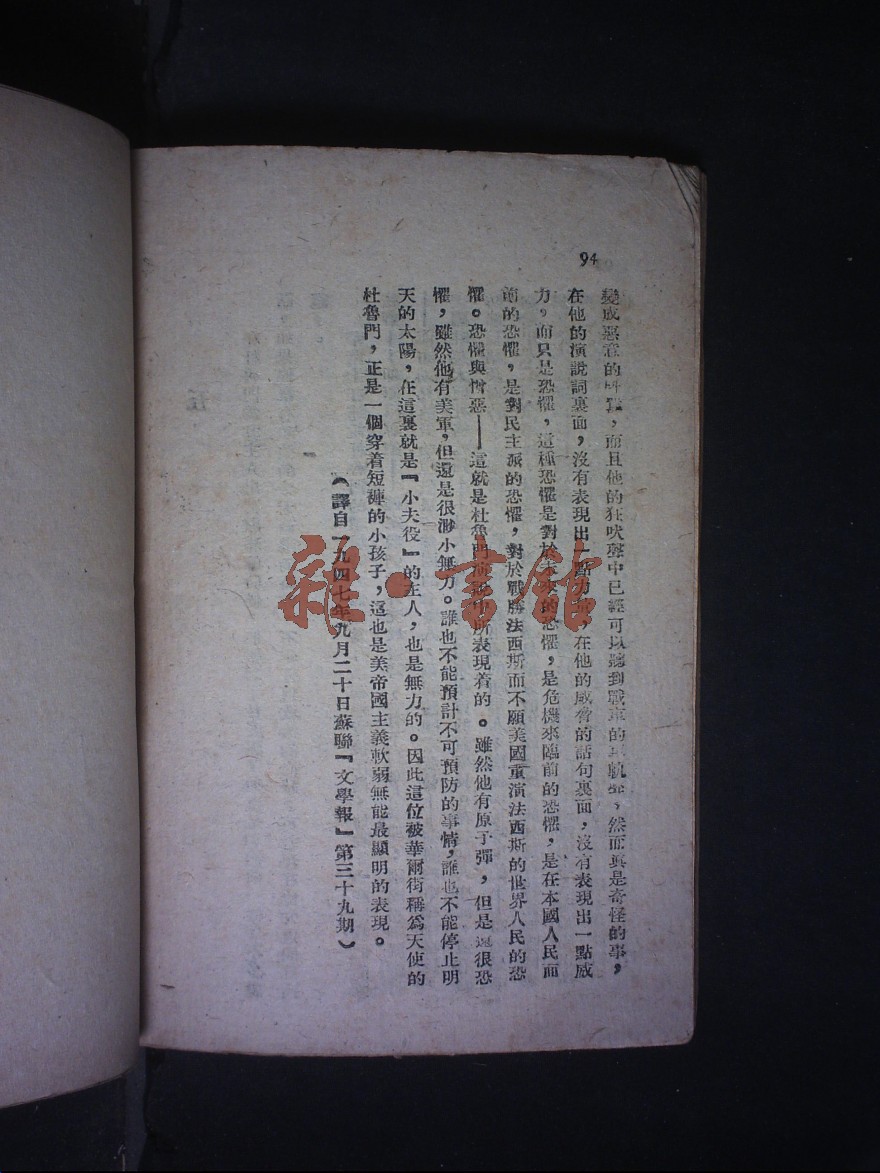 94
變成惡意的，而且他的狂吠聲中已經可以聽到戰車的軌，然而真是奇怪的事，
在他的演說詞裏面，沒有表現出一點力，在他的威脅的話句裏面，沒有表現出一點威
力。而只是恐懼，這種恐懼是對於未來的恐懼，是危機來臨前的恐懼，是在本國人民面
前的恐懼，是對民主派的恐懼，對於戰勝法西斯而不願美國重演法西斯的世界人民的恐
懼。恐懼與憎惡——這就是杜魯門演說中所表現着的。雖然他有原子彈，但是還很恐
懼，雖然他有美軍，但還是很渺小無力。誰也不能預計不可預防的事情，誰也不能停止明
天的太陽，在這裏就是『小夫役』的主人，也是無力的。因此這位被華爾街稱爲天使的
杜魯門，正是一個穿着短褲的小孩子，這也是美帝國主義軟弱無能最顯明的表現。
（譯自一九四七年九月二十日蘇聯『文學報』第三十九期）
雜·書館